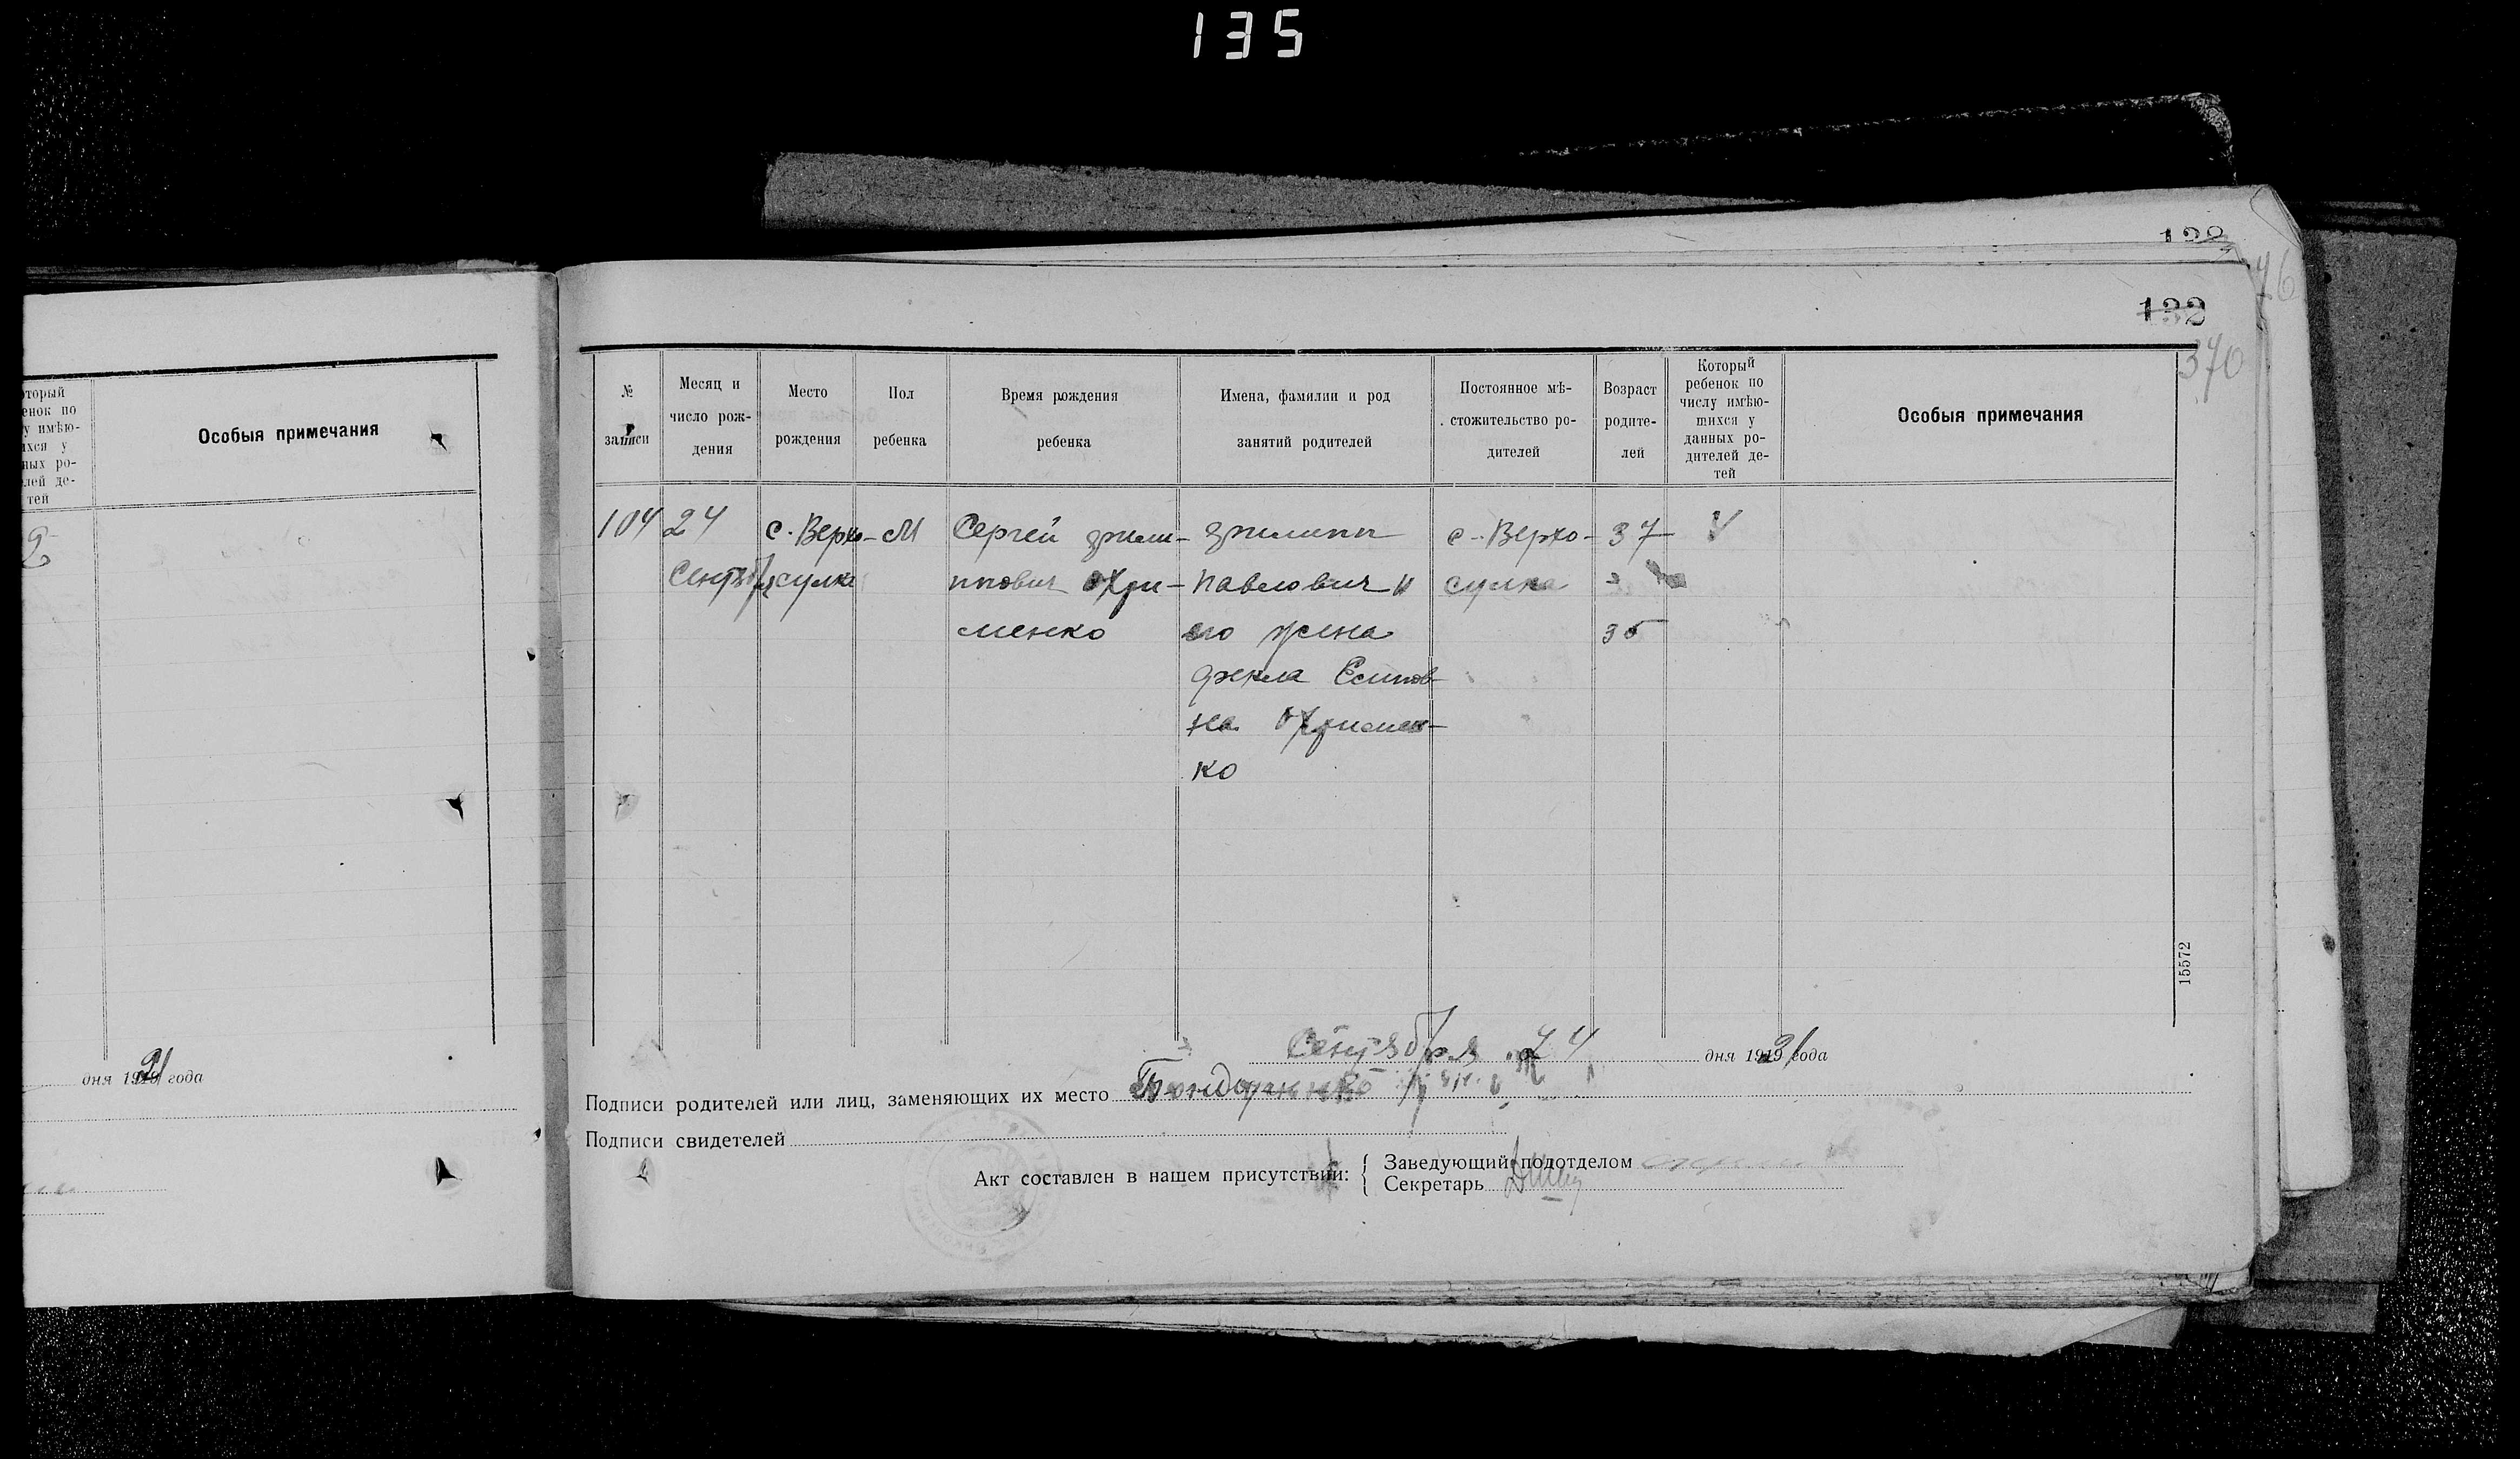 135
132
46
132
370
оторый
енок по
у имѣю-
ихся у
ных ро-
лей де-
тей
Особыя примечания
2
дня 1921 года
№
записи
Месяц и
число рож-
дения
Место
рождения
Пол
ребенка
Время рождения
ребенка
Имена, фамилии и род
занятий родителей
Постоянное мѣ-
стожительство ро-
дителей
Возраст
родите-
лей
Который
ребенок по
числу имѣю-
щихся у
данных ро-
дителей де-
тей
Особыя примечания
104
24
Сентбря
с. Верхо-
сулка
М
Сергей Фили-
ппович Охри-
менко
Филипп
Павлович и
его жена
Фекла Есипов-
на Охримен-
ко
с. Верхо-
сулка
37
35
15572
Сентября 24 дня 1921 года
Подписи родителей или лиц, заменяющих их место
Подписи свидетелей
Акт составлен в нашем присутствии:
Заведующий подотделом
Секретарь